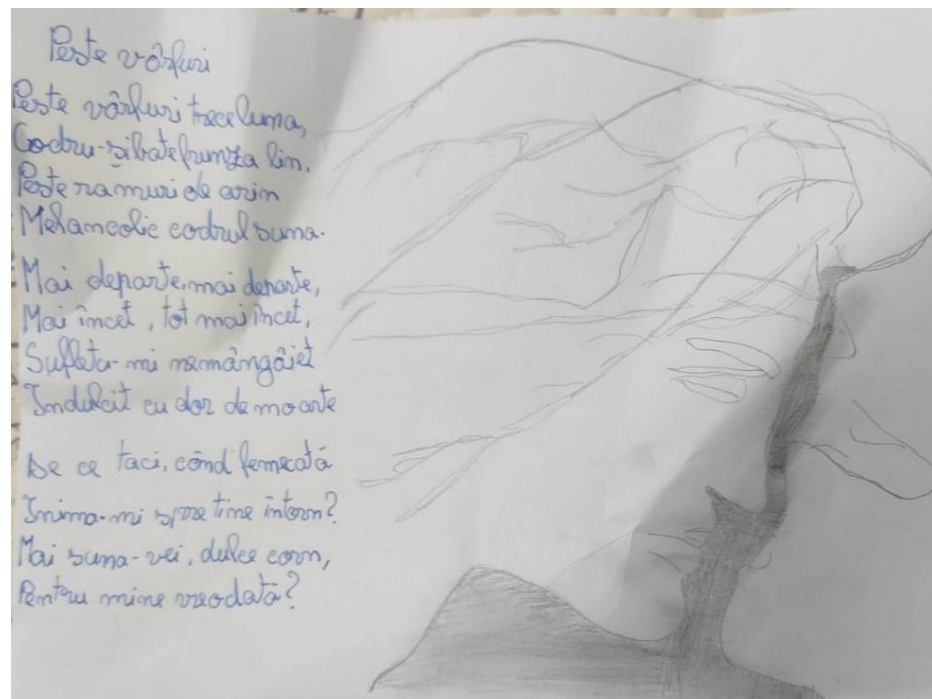 Peste vârfuri
Peste vârfuri trece luma,
Codru-și bate frumza lin,
Peste ramuri de arin
Melancolic codrul suma.
Mai departe, mai departe,
Mai încet, tot mai încet,
Sufletu-mi nemângâiet
Indulcit cu dor de moarte
De ce taci, cônd femecată
Inima-mi spre tine întorn?
Mai suna-vei, dulce corn,
Pentru mine vreodată?